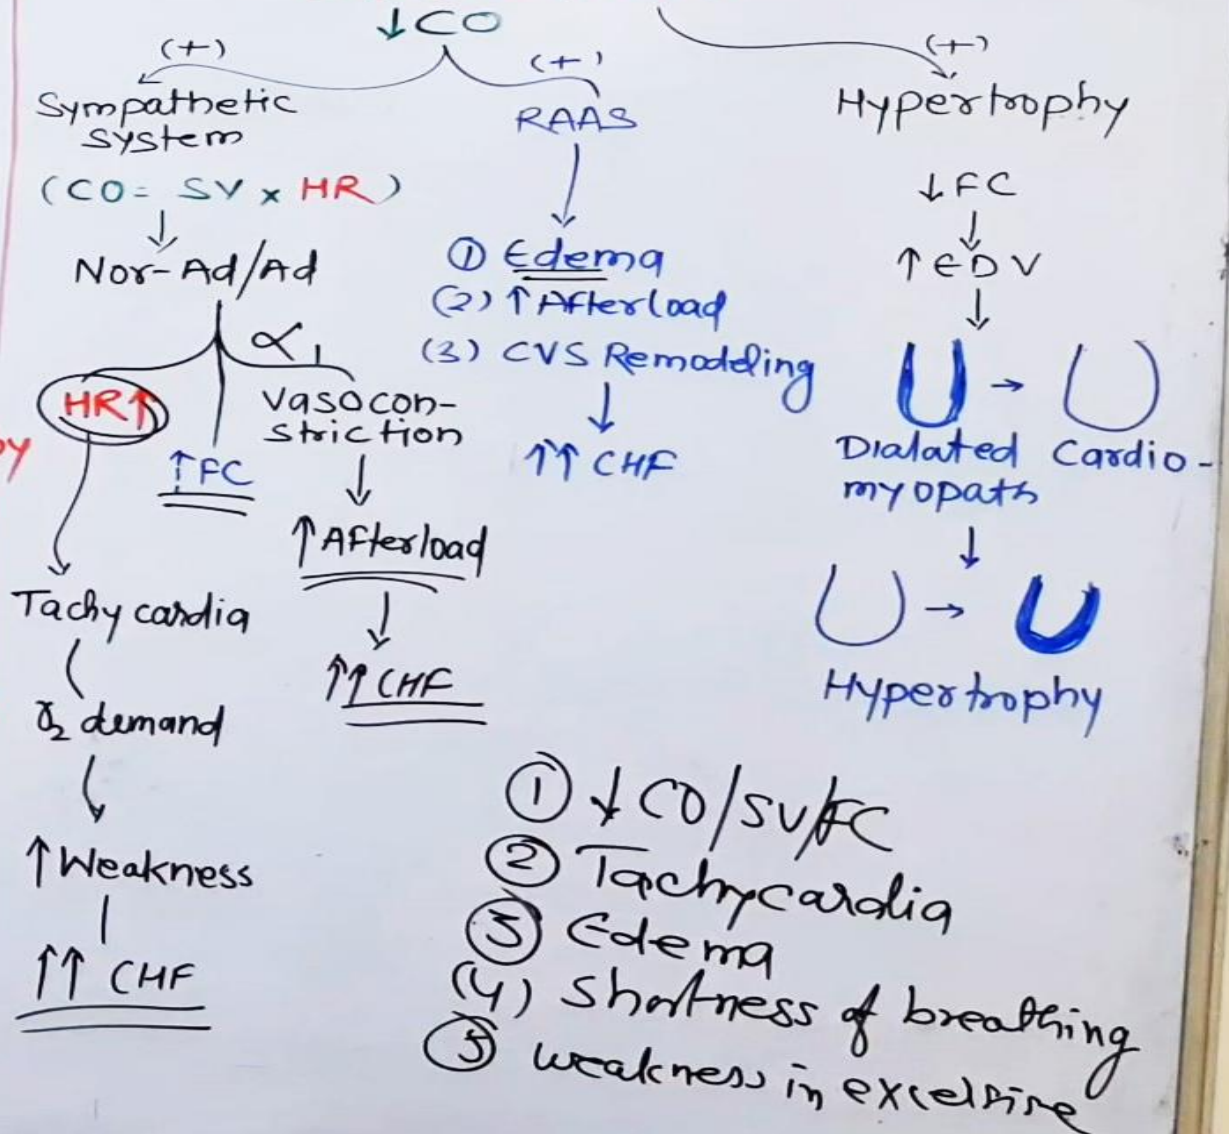 ↓CO
(+)
(+)
(+)
Sympathetic
system
RAAS
Hypertrophy
(CO = SV x HR)
↓
Nor-Ad/Ad
α1
HR↑
↑FC
Vasocon-
striction
↓
↑Afterload
↓
↑↑ CHF
Tachycardia
O2 demand
↑Weakness
↑↑ CHF
↓
① Edema
(2) ↑Afterload
(3) CVS Remodeling
↓
↑↑ CHF
↓FC
↓
↑EDV
↓
→
Dialated Cardio-
myopath
↓
→
Hypertrophy
① ↓ CO/SV/FC
② Tachycardia
③ Edema
(4) Shortness of breathing
⑤ weakness in